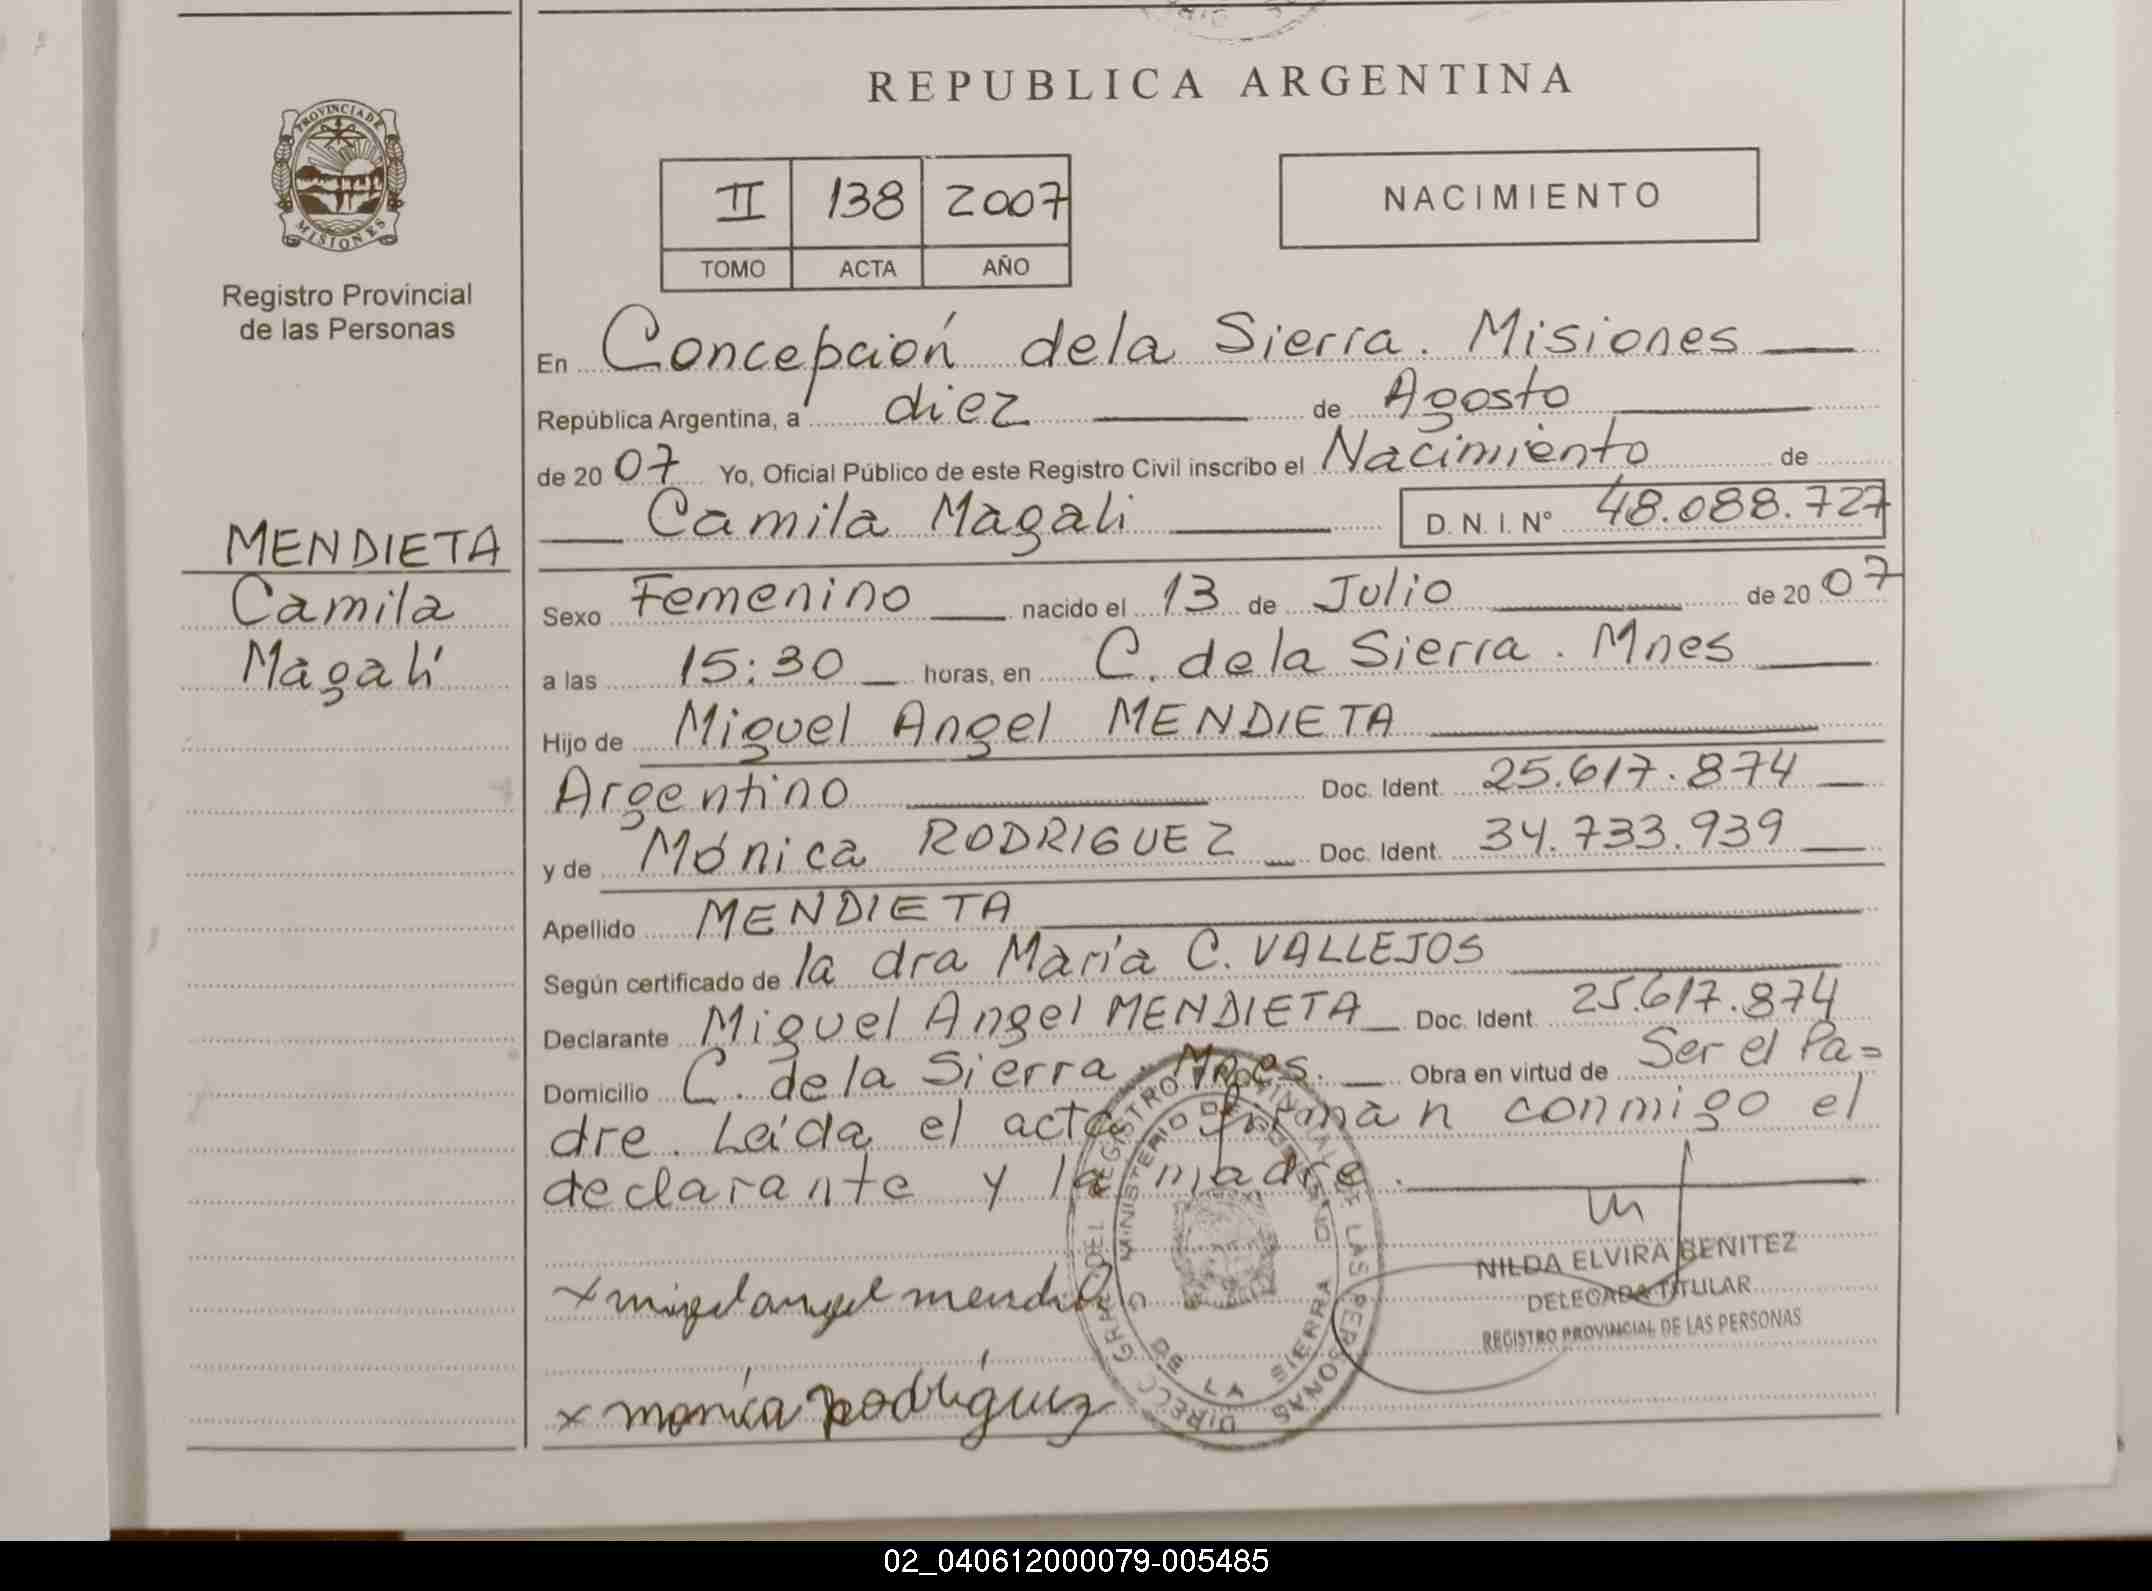 REPUBLICA ARGENTINA
PROVINCIA DE MISIONES
Registro Provincial
de las Personas
II 138 2007
TOMO ACTA AÑO
NACIMIENTO
En Concepción de la Sierra. Misiones
República Argentina, a diez de Agosto
de 2007 Yo, Oficial Público de este Registro Civil inscribo el Nacimiento de
Camila Magali D. N. I. Nº 48.088.727
MENDIETA
Camila
Magalí
Sexo Femenino nacido el 13 de Julio de 2007
a las 15:30 horas, en C. de la Sierra. Mnes
Hijo de Miguel Angel MENDIETA
Argentino Doc. Ident. 25.617.874
y de Mónica RODRIGUEZ Doc. Ident. 34.733.939
Apellido MENDIETA
Según certificado de la dra María C. VALLEJOS
Declarante Miguel Angel MENDIETA Doc. Ident. 25.617.874
Domicilio C. de la Sierra. Mnes. Obra en virtud de Ser el Pa=
dre. Leída el acta firman conmigo el
declarante y la madre.
x miguel angel
x monica rodriguez
DIRECC GRAL DEL REGISTRO PROVINCIAL DE LAS PERSONAS
MINISTERIO DE
DE LA SIERRA
NILDA ELVIRA BENITEZ
DELEGADA TITULAR
REGISTRO PROVINCIAL DE LAS PERSONAS
02_040612000079-005485